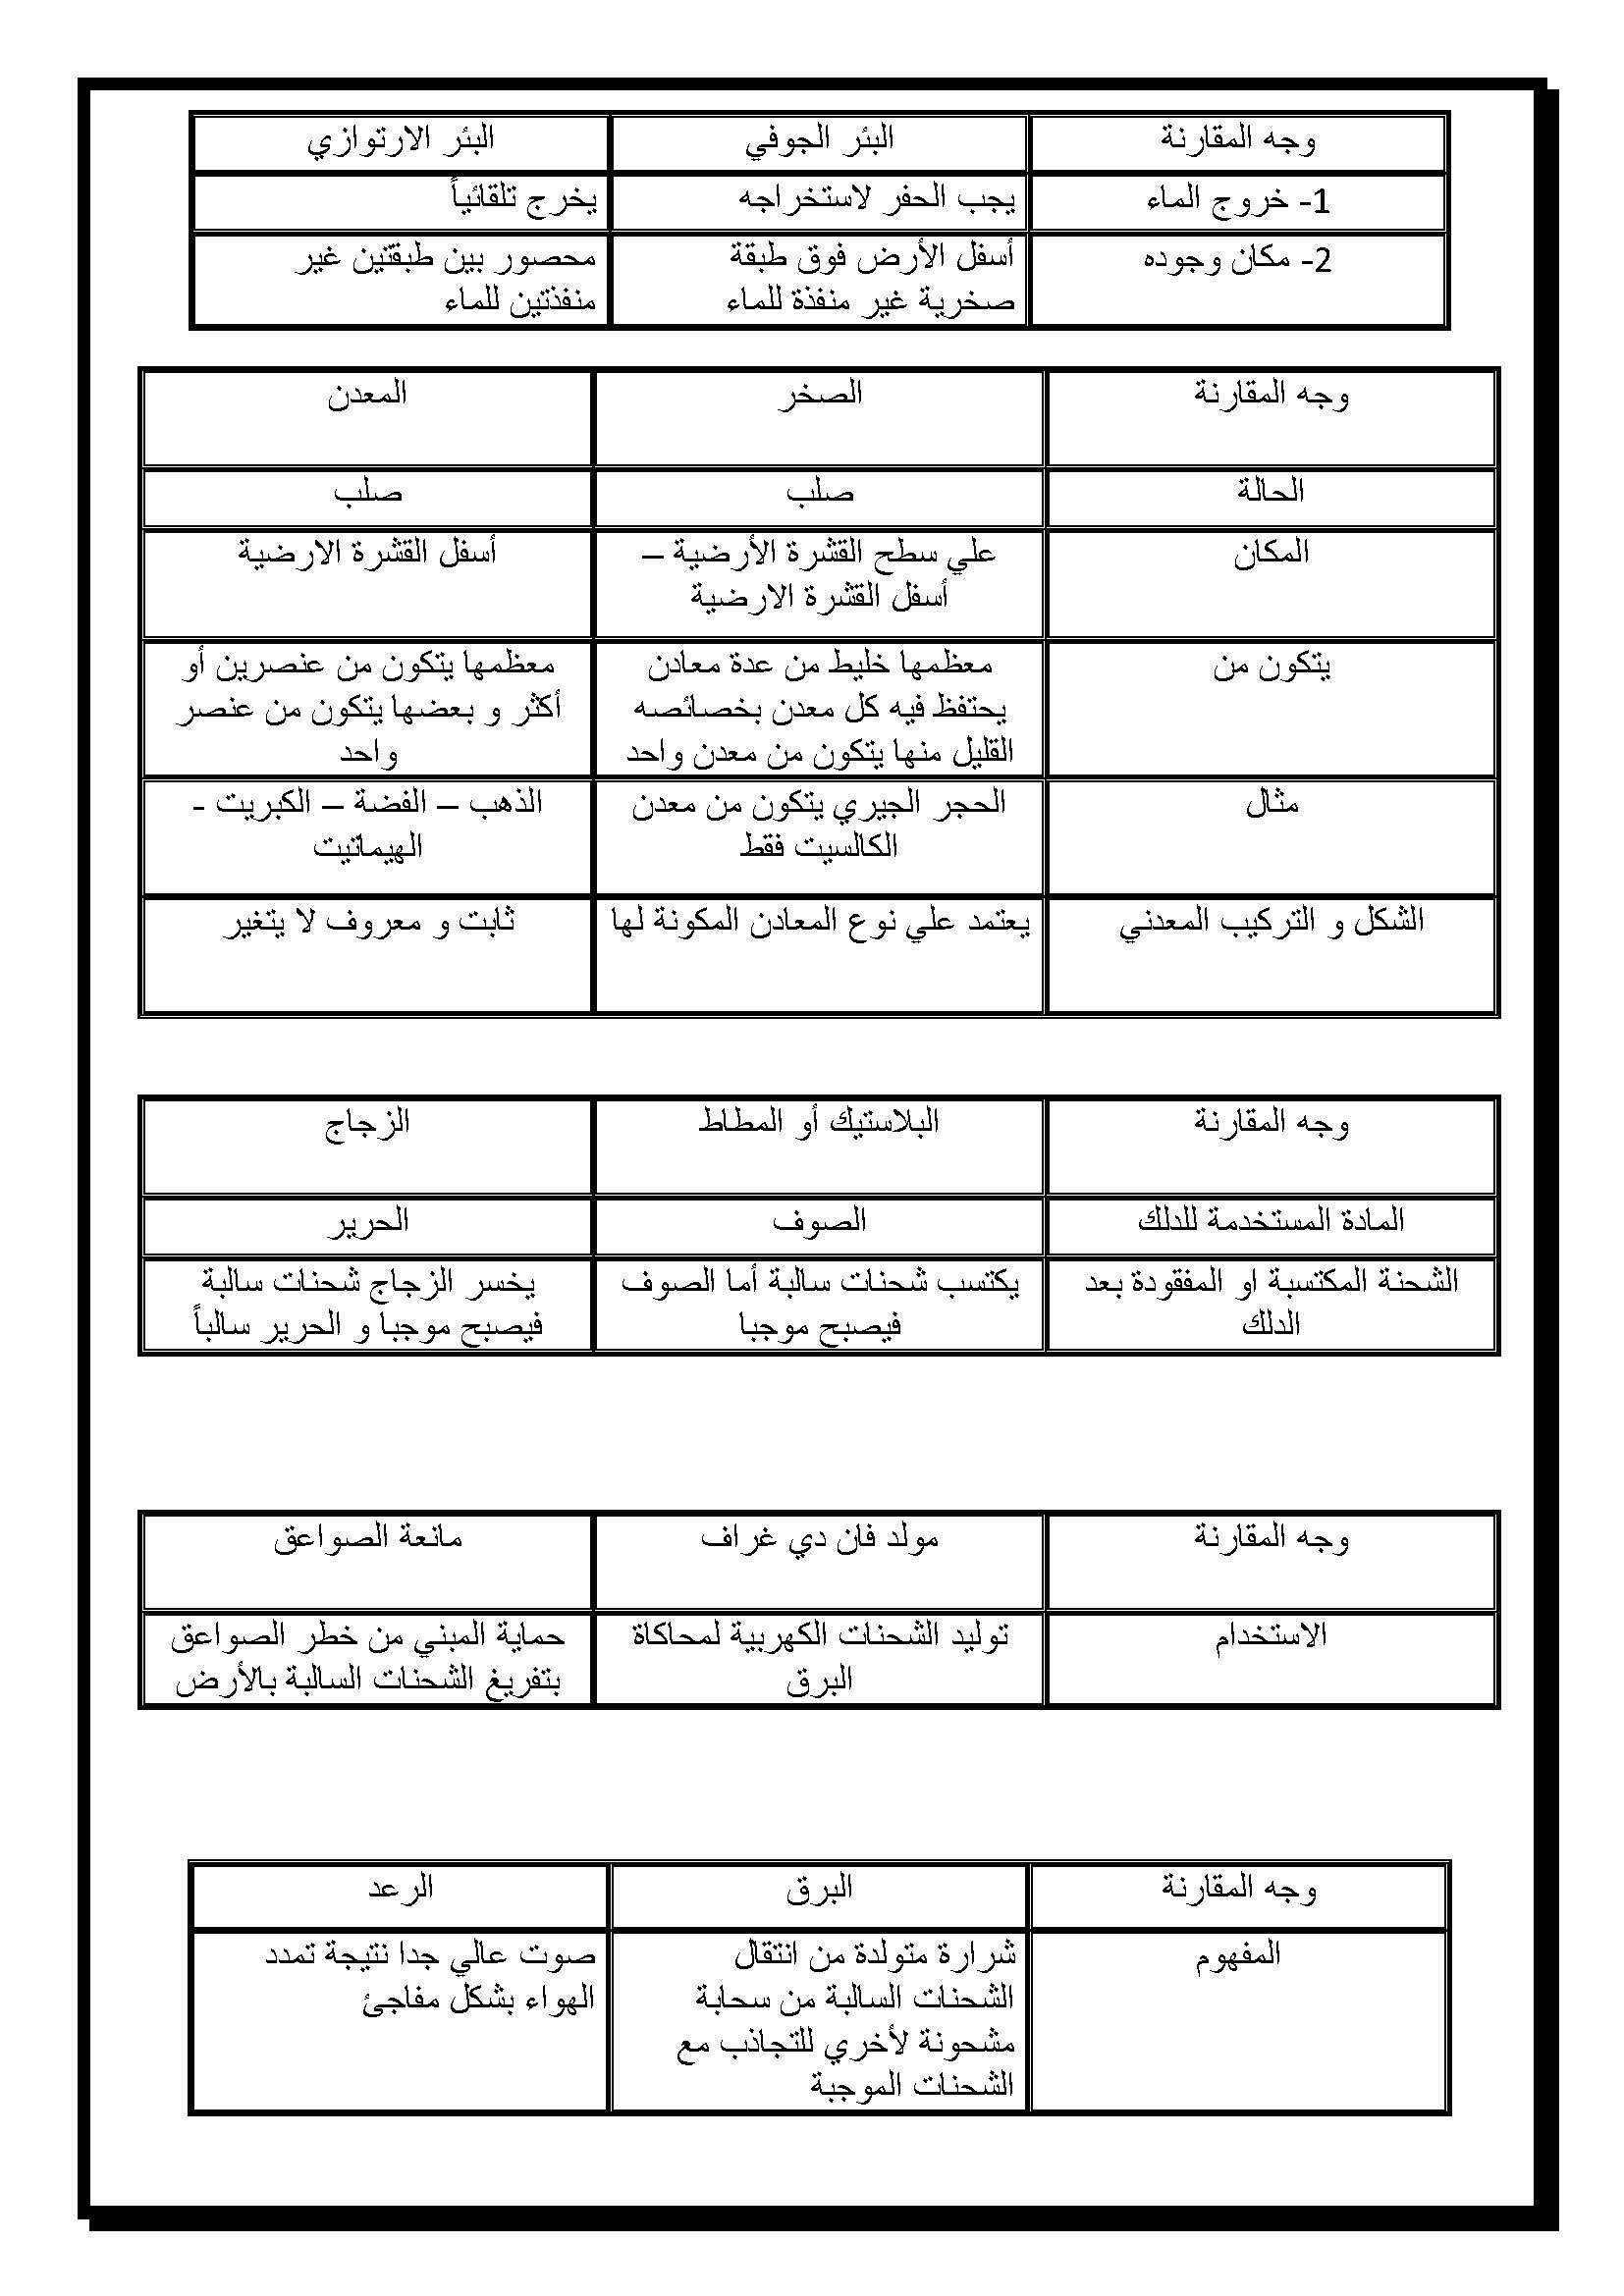 وجه المقارنة البئر الجوفي البئر الارتوازي
1- خروج الماء يجب الحفر لاستخراجه يخرج تلقائياً
2- مكان وجوده أسفل الأرض فوق طبقة محصور بين طبقتين غير
صخرية غير منفذة للماء منفذتين للماء
وجه المقارنة الصخر المعدن
الحالة صلب صلب
المكان علي سطح القشرة الأرضية – أسفل القشرة الارضية
أسفل القشرة الارضية
يتكون من معظمها خليط من عدة معادن معظمها يتكون من عنصرين أو
يحتفظ فيه كل معدن بخصائصه أكثر و بعضها يتكون من عنصر
القليل منها يتكون من معدن واحد واحد
مثال الحجر الجيري يتكون من معدن الذهب – الفضة – الكبريت -
الكالسيت فقط الهيماتيت
الشكل و التركيب المعدني يعتمد علي نوع المعادن المكونة لها ثابت و معروف لا يتغير
وجه المقارنة البلاستيك أو المطاط الزجاج
المادة المستخدمة للدلك الصوف الحرير
الشحنة المكتسبة او المفقودة بعد يكتسب شحنات سالبة أما الصوف يخسر الزجاج شحنات سالبة
الدلك فيصبح موجبا فيصبح موجبا و الحرير سالباً
وجه المقارنة مولد فان دي غراف مانعة الصواعق
الاستخدام توليد الشحنات الكهربية لمحاكاة حماية المبني من خطر الصواعق
البرق بتفريغ الشحنات السالبة بالأرض
وجه المقارنة البرق الرعد
المفهوم شرارة متولدة من انتقال صوت عالي جدا نتيجة تمدد
الشحنات السالبة من سحابة الهواء بشكل مفاجئ
مشحونة لأخري للتجاذب مع
الشحنات الموجبة